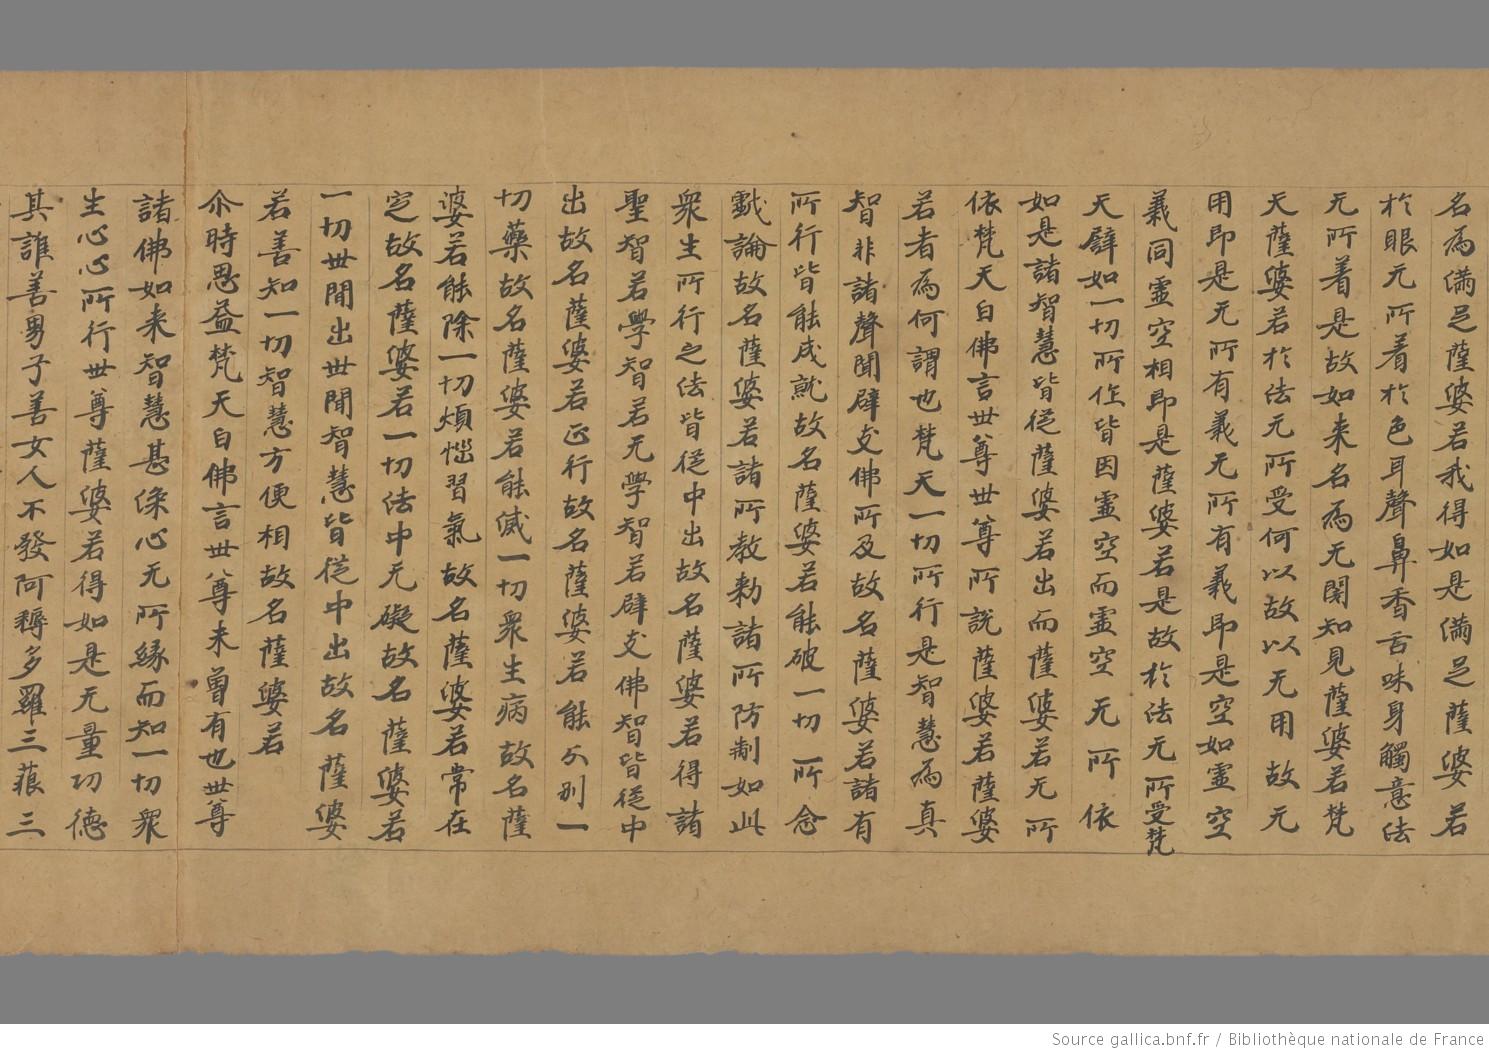 名為滿足薩婆若我得如是滿足薩婆若
於眼无所着於色耳聲鼻香舌味身觸意法
无所着是故如来名為无閡知見薩婆若梵
天薩婆若於法无所受何以故以无用故无
用即是无所有義无所有義即是空如虛空
義同虛空相即是薩婆若是故於法无所受梵
天譬如一切所作皆因虛空而虛空无所依
如是諸智慧皆從薩婆若出而薩婆若无所
依梵天白佛言世尊世尊所說薩婆若薩婆
若者為何謂也梵天一切所行是智慧為真
智非諸聲聞辟支佛所及故名薩婆若諸有
所行皆能成就故名薩婆若能破一切所念
戲論故名薩婆若諸所教勑諸所防制如此
衆生所行之法皆從中出故名薩婆若得諸
聖智若學智若无學智若辟支佛智皆從中
出故名薩婆若正行故名薩婆若能分别一
切藥故名薩婆若能滅一切衆生病故名薩
婆若能除一切煩惱習氣故名薩婆若常在
定故名薩婆若一切法中无礙故名薩婆若
一切世間出世間智慧皆從中出故名薩婆
若善知一切智慧方便相故名薩婆若
尒時思益梵天白佛言世尊未曾有也世尊
諸佛如来智慧甚深心无所緣而知一切衆
生心心所行世尊薩婆若得如是无量功德
其誰善男子善女人不發阿耨多羅三藐三
Source gallica.bnf.fr / Bibliothèque nationale de France